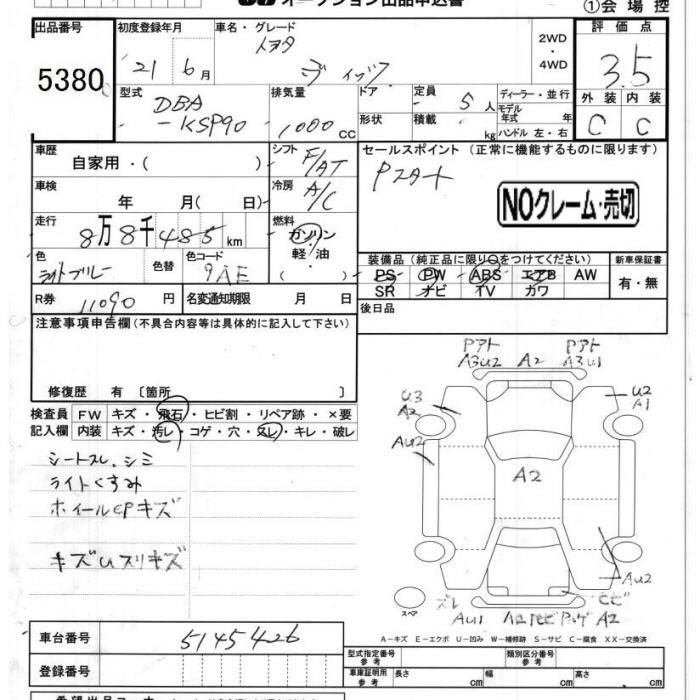 オークション出品申込書
①会場控
出品番号 5380
初度登録年月 '21年6月
車名・グレード トヨタ
2WD・4WD
評価点 3.5
外装 C 内装 C
型式 DBA-KSP90
排気量 1000 cc
ドア 形状
定員 5人
積載 kg
ディーラー・並行
モデル年式 年
ハンドル 左・右
車歴 自家用・( )
シフト F/AT
セールスポイント (正常に機能するものに限ります)
Pスタート
NOクレーム・売切
車検 年 月( 日)
冷房 A/C
走行 8万8千485km
燃料 ガソリン・軽油 ( )
色 ライトブルー
色替
色コード 9AE
装備品 (純正品に限り○をつけてください)
PS PW ABS エアB AW
SR ナビ TV カワ
新車保証書 有・無
R券 11090円
名変通知期限 月 日
後日品
注意事項申告欄 (不具合内容等は具体的に記入して下さい)
修復歴 有 〔箇所 〕
検査員記入欄
FW キズ・飛石・ヒビ割・リペア跡・×要
内装 キズ・汚レ・コゲ・穴・スレ・キレ・破レ
シートスレ、シミ
ライトくすみ
ホイールCPキズ
キズUスリキズ
Pアト Pアト
A3U2 A2 A3U1
U3 A2
U2 A1
AU2
A2
AU2
スペア
AU1
A2
A－キズ E－エクボ U－凹み W－補修跡 S－サビ C－腐食 XX－交換済
車台番号 5145426
登録番号
型式指定番号 参考
類別区分番号 参考
車庫証明用 参考 長さ cm 幅 cm 高さ cm
希望出品コーナー